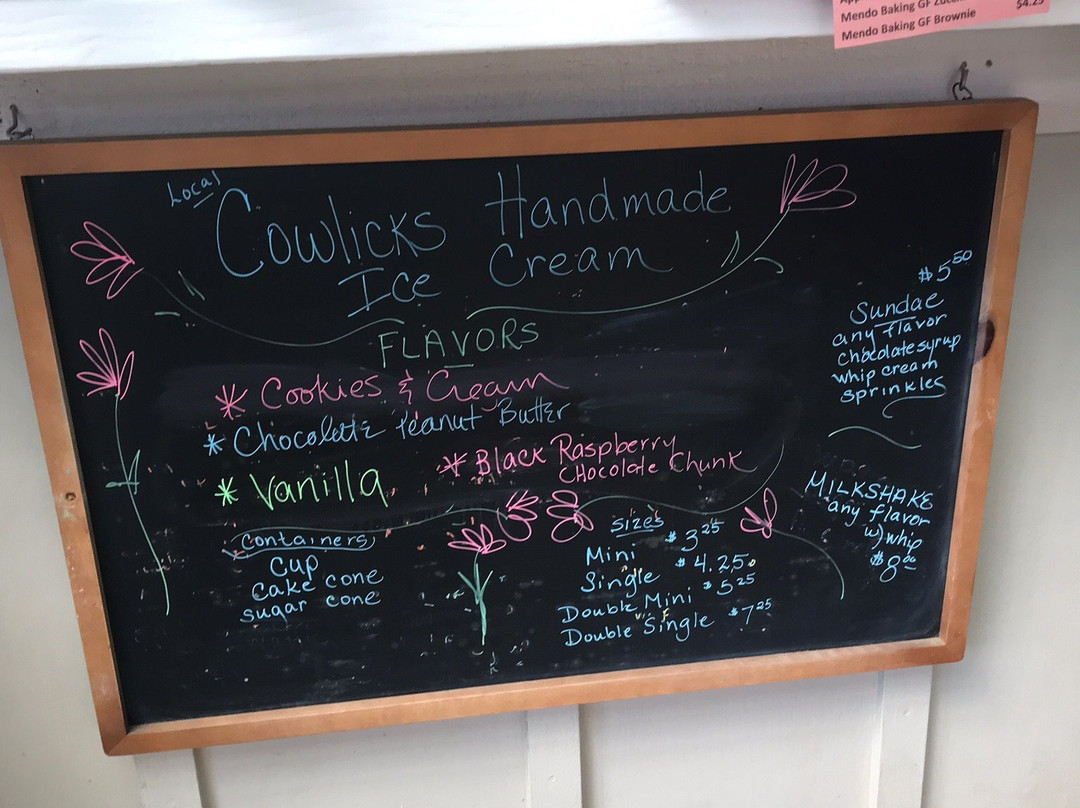 Mendo Baking GF
$4.25
Mendo Baking GF Brownie
Local
Cowlicks Handmade
Ice Cream
FLAVORS
* Cookies & Cream
* Chocolate Peanut Butter
* Vanilla
* Black Raspberry
Chocolate Chunk
Containers
Cup
Cake cone
sugar cone
sizes
Mini $3 25
Single $4.25
Double Mini $5 25
Double Single $7 25
$5 50
Sundae
any flavor
chocolate syrup
whip cream
sprinkles
MILKSHAKE
any flavor
w/ whip
$8 00